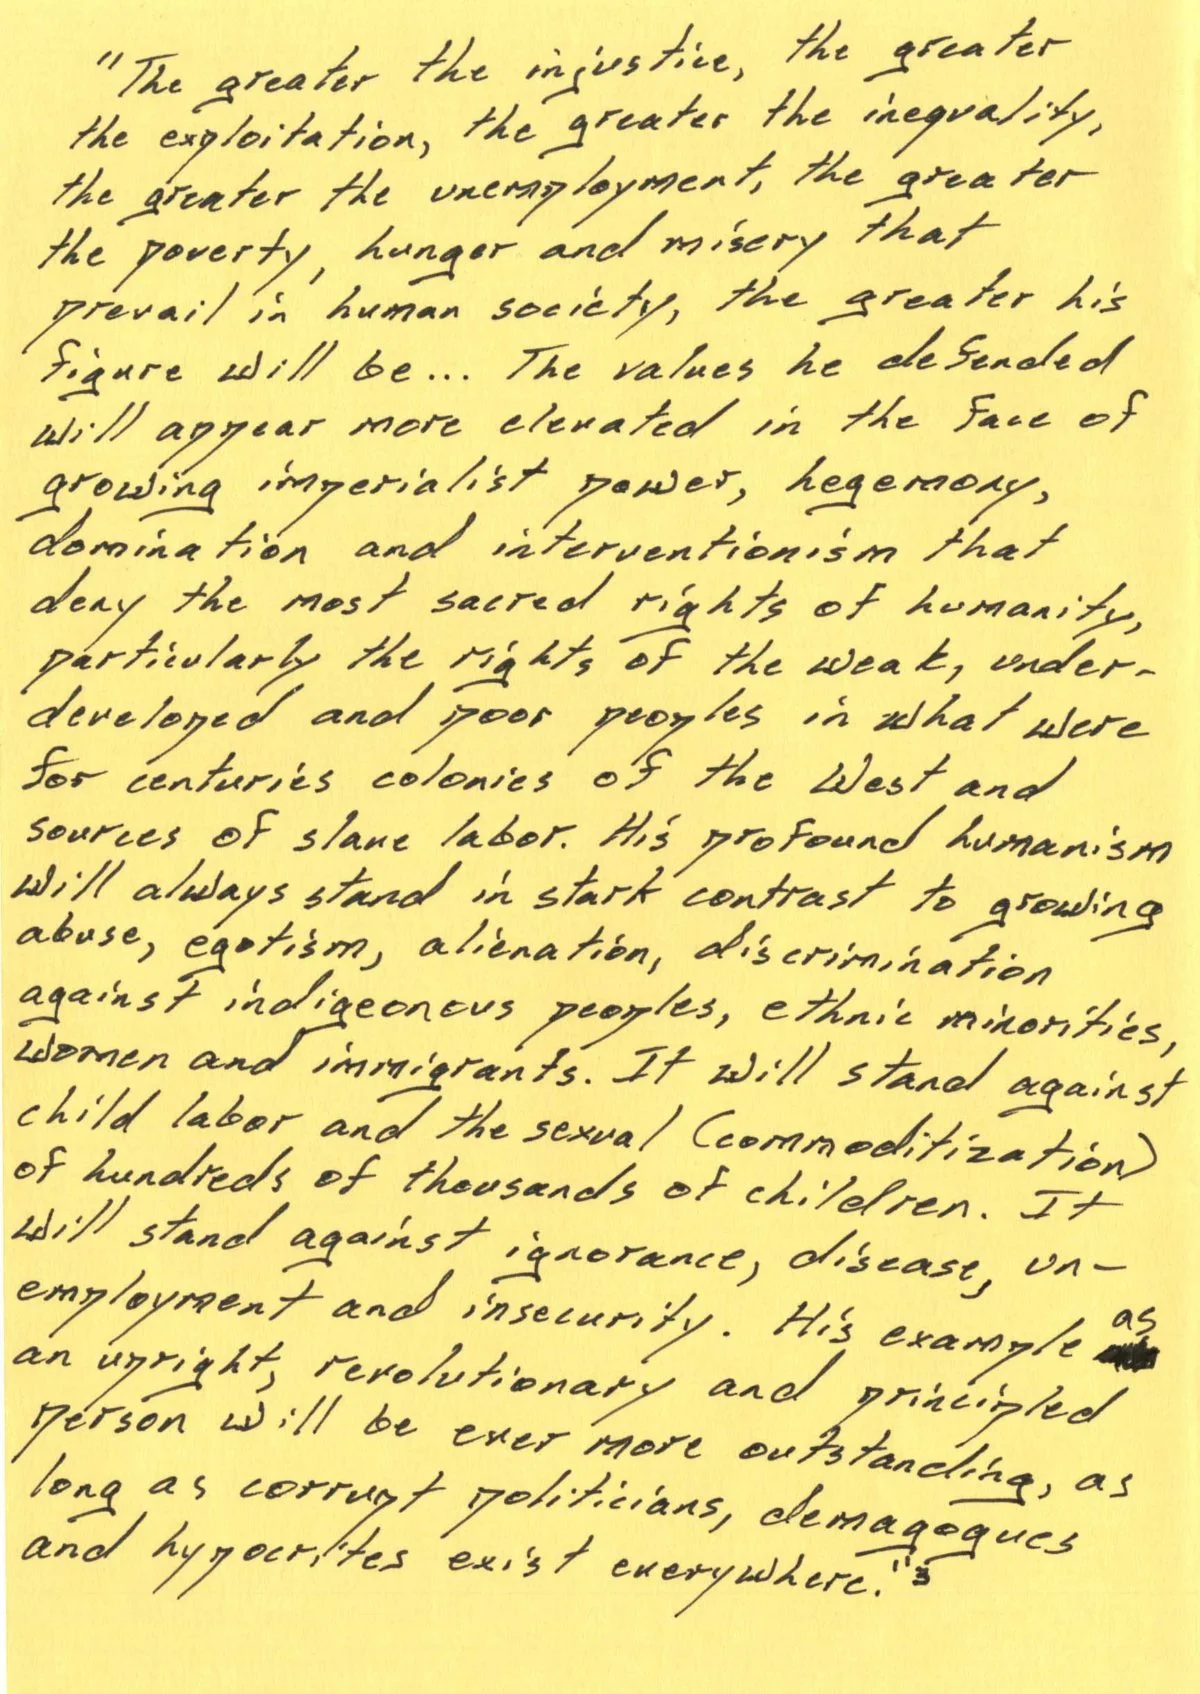 "The greater the injustice, the greater
the exploitation, the greater the inequality,
the greater the unemployment, the greater
the poverty, hunger and misery that
prevail in human society, the greater his
figure will be... The values he defended
will appear more elevated in the face of
growing imperialist power, hegemony,
domination and interventionism that
deny the most sacred rights of humanity,
particularly the rights of the weak, under-
developed and poor peoples in what were
for centuries colonies of the West and
sources of slave labor. His profound humanism
will always stand in stark contrast to growing
abuse, egotism, alienation, discrimination
against indigeonous peoples, ethnic minorities,
women and immigrants. It will stand against
child labor and the sexual (commoditization)
of hundreds of thousands of children. It
will stand against ignorance, disease, un-
employment and insecurity. His example as
an upright, revolutionary and principled
person will be ever more outstanding, as
long as corrupt politicians, demagogues
and hypocrites exist everywhere."3